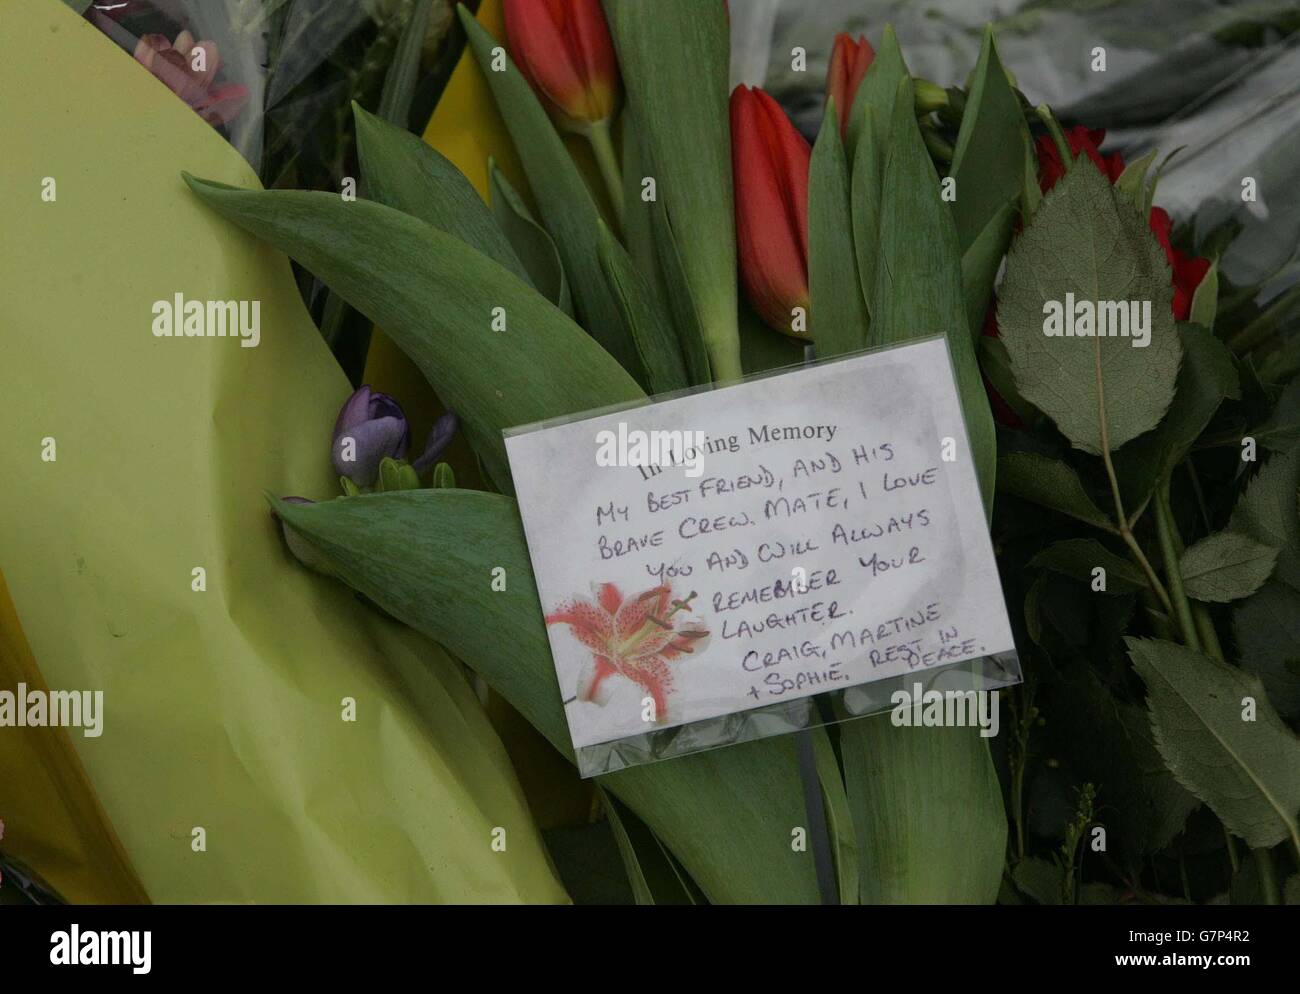 In Loving Memory
MY BEST FRIEND, AND HIS
BRAVE CREW. MATE, I LOVE
YOU AND WILL ALWAYS
REMEMBER YOUR
LAUGHTER.
CRAIG, MARTINE
+ SOPHIE. REST IN
PEACE.
alamy
alamy
Image ID: G7P4R2
www.alamy.com